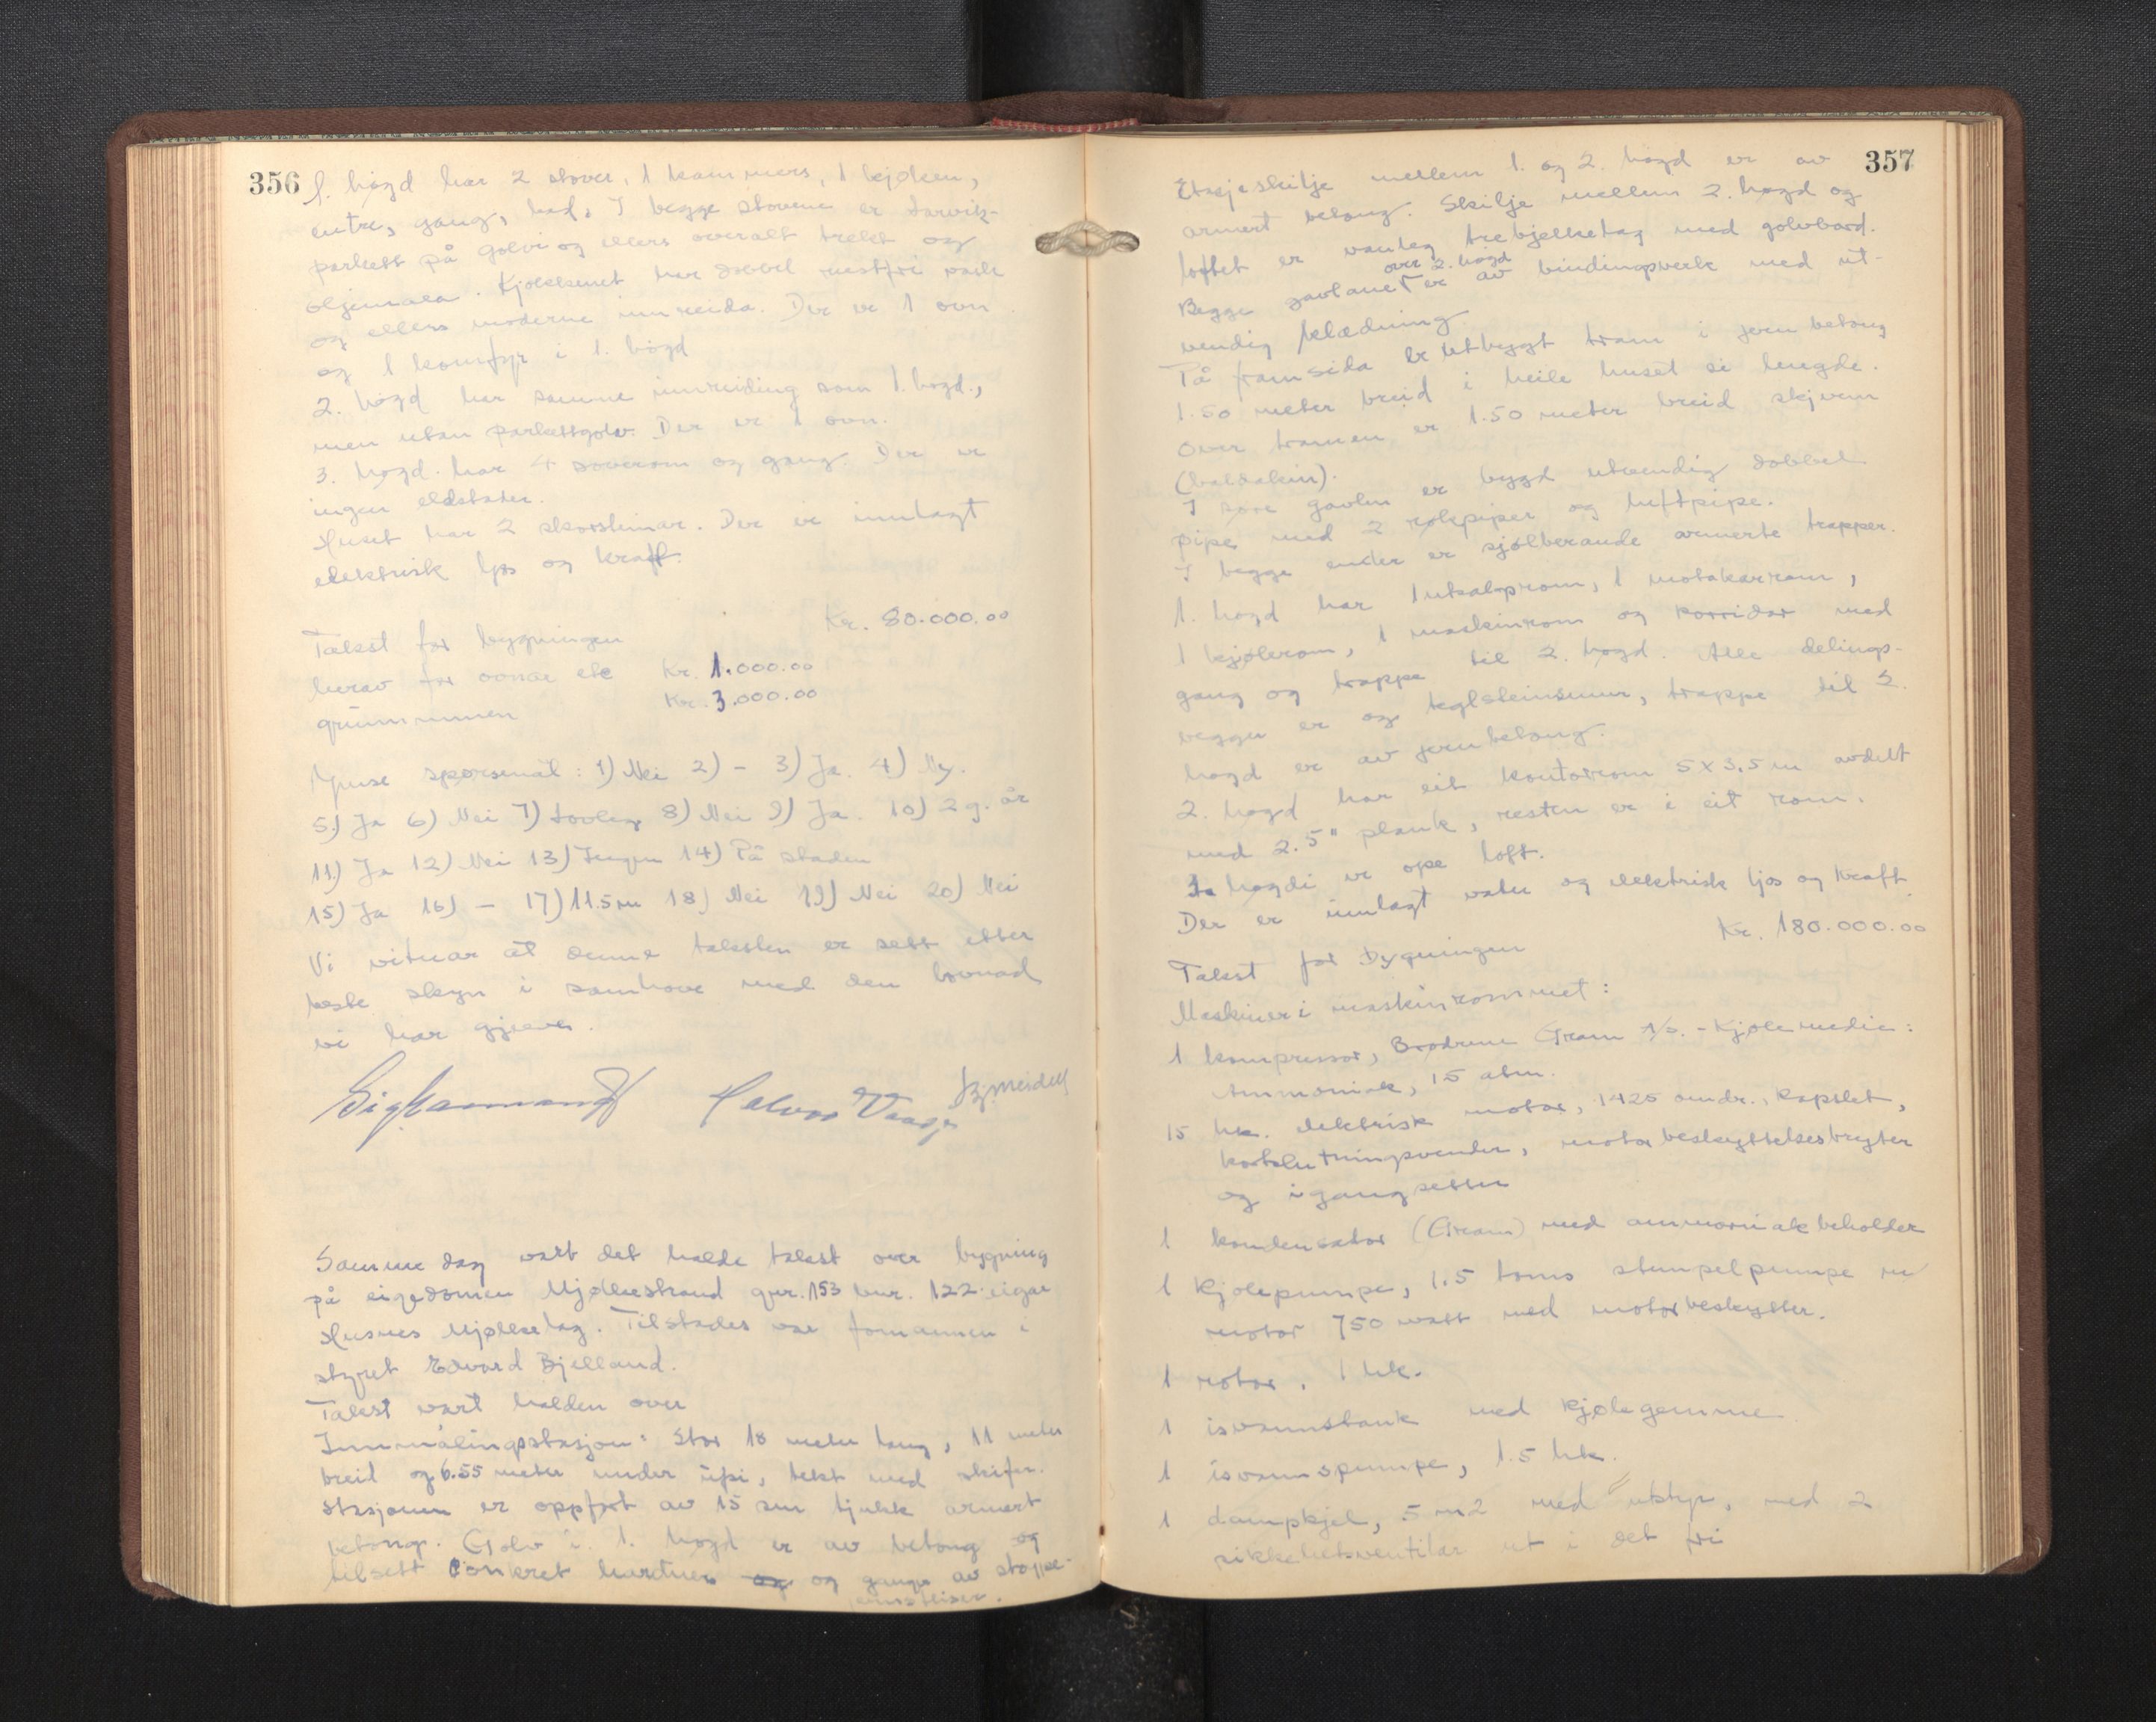 356
1. høgd har 2 stover, 1 kammers, 1 kjøken,
entre, gang, bad. I begge stovene er tarvik-
parkett på golvi og ellers overalt trekt og
oljemala. Kjøkkenet har dobbel rustfri vask
og ellers moderne innreida. Der er 1 ovn
og 1 komfyr i 1. høgd
2. høgd har samme innreiding som 1. høgd.,
men utan parkettgolv. Der er 1 ovn.
3. høgd har 4 soverom og gang. Der er
ingen eldstader.
Huset har 2 skorsteinar. Der er innlagt
elektrisk ljos og kraft.
Takst for bygningen Kr. 80.000.00
herav for ovnar etc Kr. 1.000.00
grunnmuren Kr. 3.000.00
Ymse spørsmål: 1) Nei 2) - 3) Ja. 4) Ny.
5.) Ja 6) Nei 7) Lovleg 8) Nei 9) Ja. 10) 2 g. år
11.) Ja 12) Nei 13) Ingen 14) På staden
15) Ja 16) - 17) 11.5 m 18) Nei 19) Nei 20) Nei
Vi vitnar at denne taksten er sett etter
beste skyn i samhøve med den lovnad
vi har gjeve.
Sig Hammand Halvor Vaage
Samme dag vart det halde takst over bygning
på eigedomen Mjølkestrand gnr. 153 bnr. 122. eigar
Husnes Mjølkelag. Tilstades var formannen i
styret Edvard Bjelland.
Takst vart halden over
Innmålingsstasjon: Stor 18 meter lang, 11 meter
breid og 6.55 meter under upsi, tekt med skifer.
Stasjonen er oppført av 15 cm tjukk armert
betong. Golv i 1. høgd er av betong og
tilsett konkret hardner og og gange av stoppe-
357
Etasjeskilje mellem 1. og 2. høgd er av
armert betong. Skilje mellem 2. høgd og
loftet er vanleg trebjelkelag med golvbord.
over 2. høgd
Begge gavlane er av bindingsverk med ut-
vendig klædning.
På framsida er utbygt tram i jern betong
1.50 meter breid i heile huset si lengde.
Over tramen er 1.50 meter breid skjerm
(baldakin).
I søre gavlen er bygd utvendig dobbel
pipe med 2 røkpiper og luftpipe.
I begge ender er sjølberande armerte trapper.
1. høgd har 1 utsalgsrom, 1 motakarrom,
1 kjølerom, 1 maskinrom og korridor med
gang og trappe til 2. høgd. Alle delings-
vegger er og teglsteinsmur, trappe til 2.
høgd er av jernbetong.
2. høgd har eit kontorrom 5 x 3.5 m avdelt
med 2.5" plank, resten er i eit rom.
høgdi er ope loft.
Der er innlagt vatn og elektrisk ljos og kraft
Kr. 180.000.00
Takst for bygningen
Maskiner i maskinrommet:
1 kompressor, Brødrene Gram A/S. - Kjølemedie:
Ammoniak, 15 atm.
15 hk. elektrisk motor, 1425 omdr., kapslet,
kortslutningsvender, motorbeskyttelsesbryter
og igangsetter
1 kondensator (Gram) med ammoniakbeholder
1 kjølepumpe, 1.5 toms stempelpumpe m/
motor 750 watt med motorbeskytter.
1 rotor, 1 hk.
1 isvannstank med kjølegemme
1 isvannspumpe, 1.5 hk.
1 dampkjel, 5 m2 med utstyr, med 2
sikkehetsventilar ut i det fri